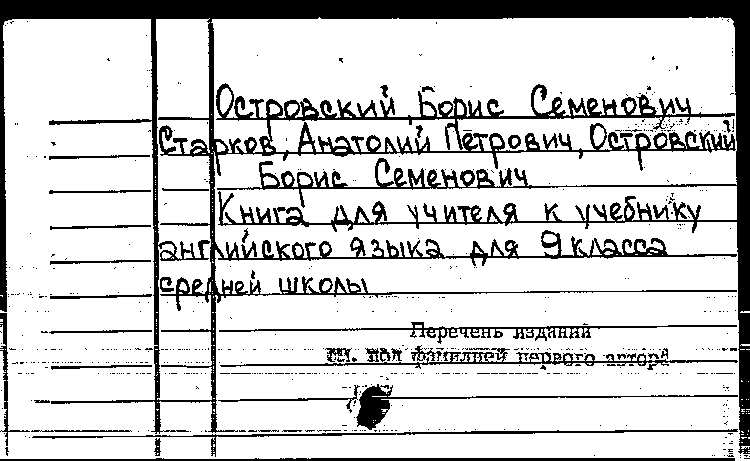 Островский, Борис Семенович
Старков, Анатолий Петрович, Островский
Борис Семенович
Книга для учителя к учебнику
английского языка для 9 класса
средней школы
Перечень изданий
см. под фамилией первого автора